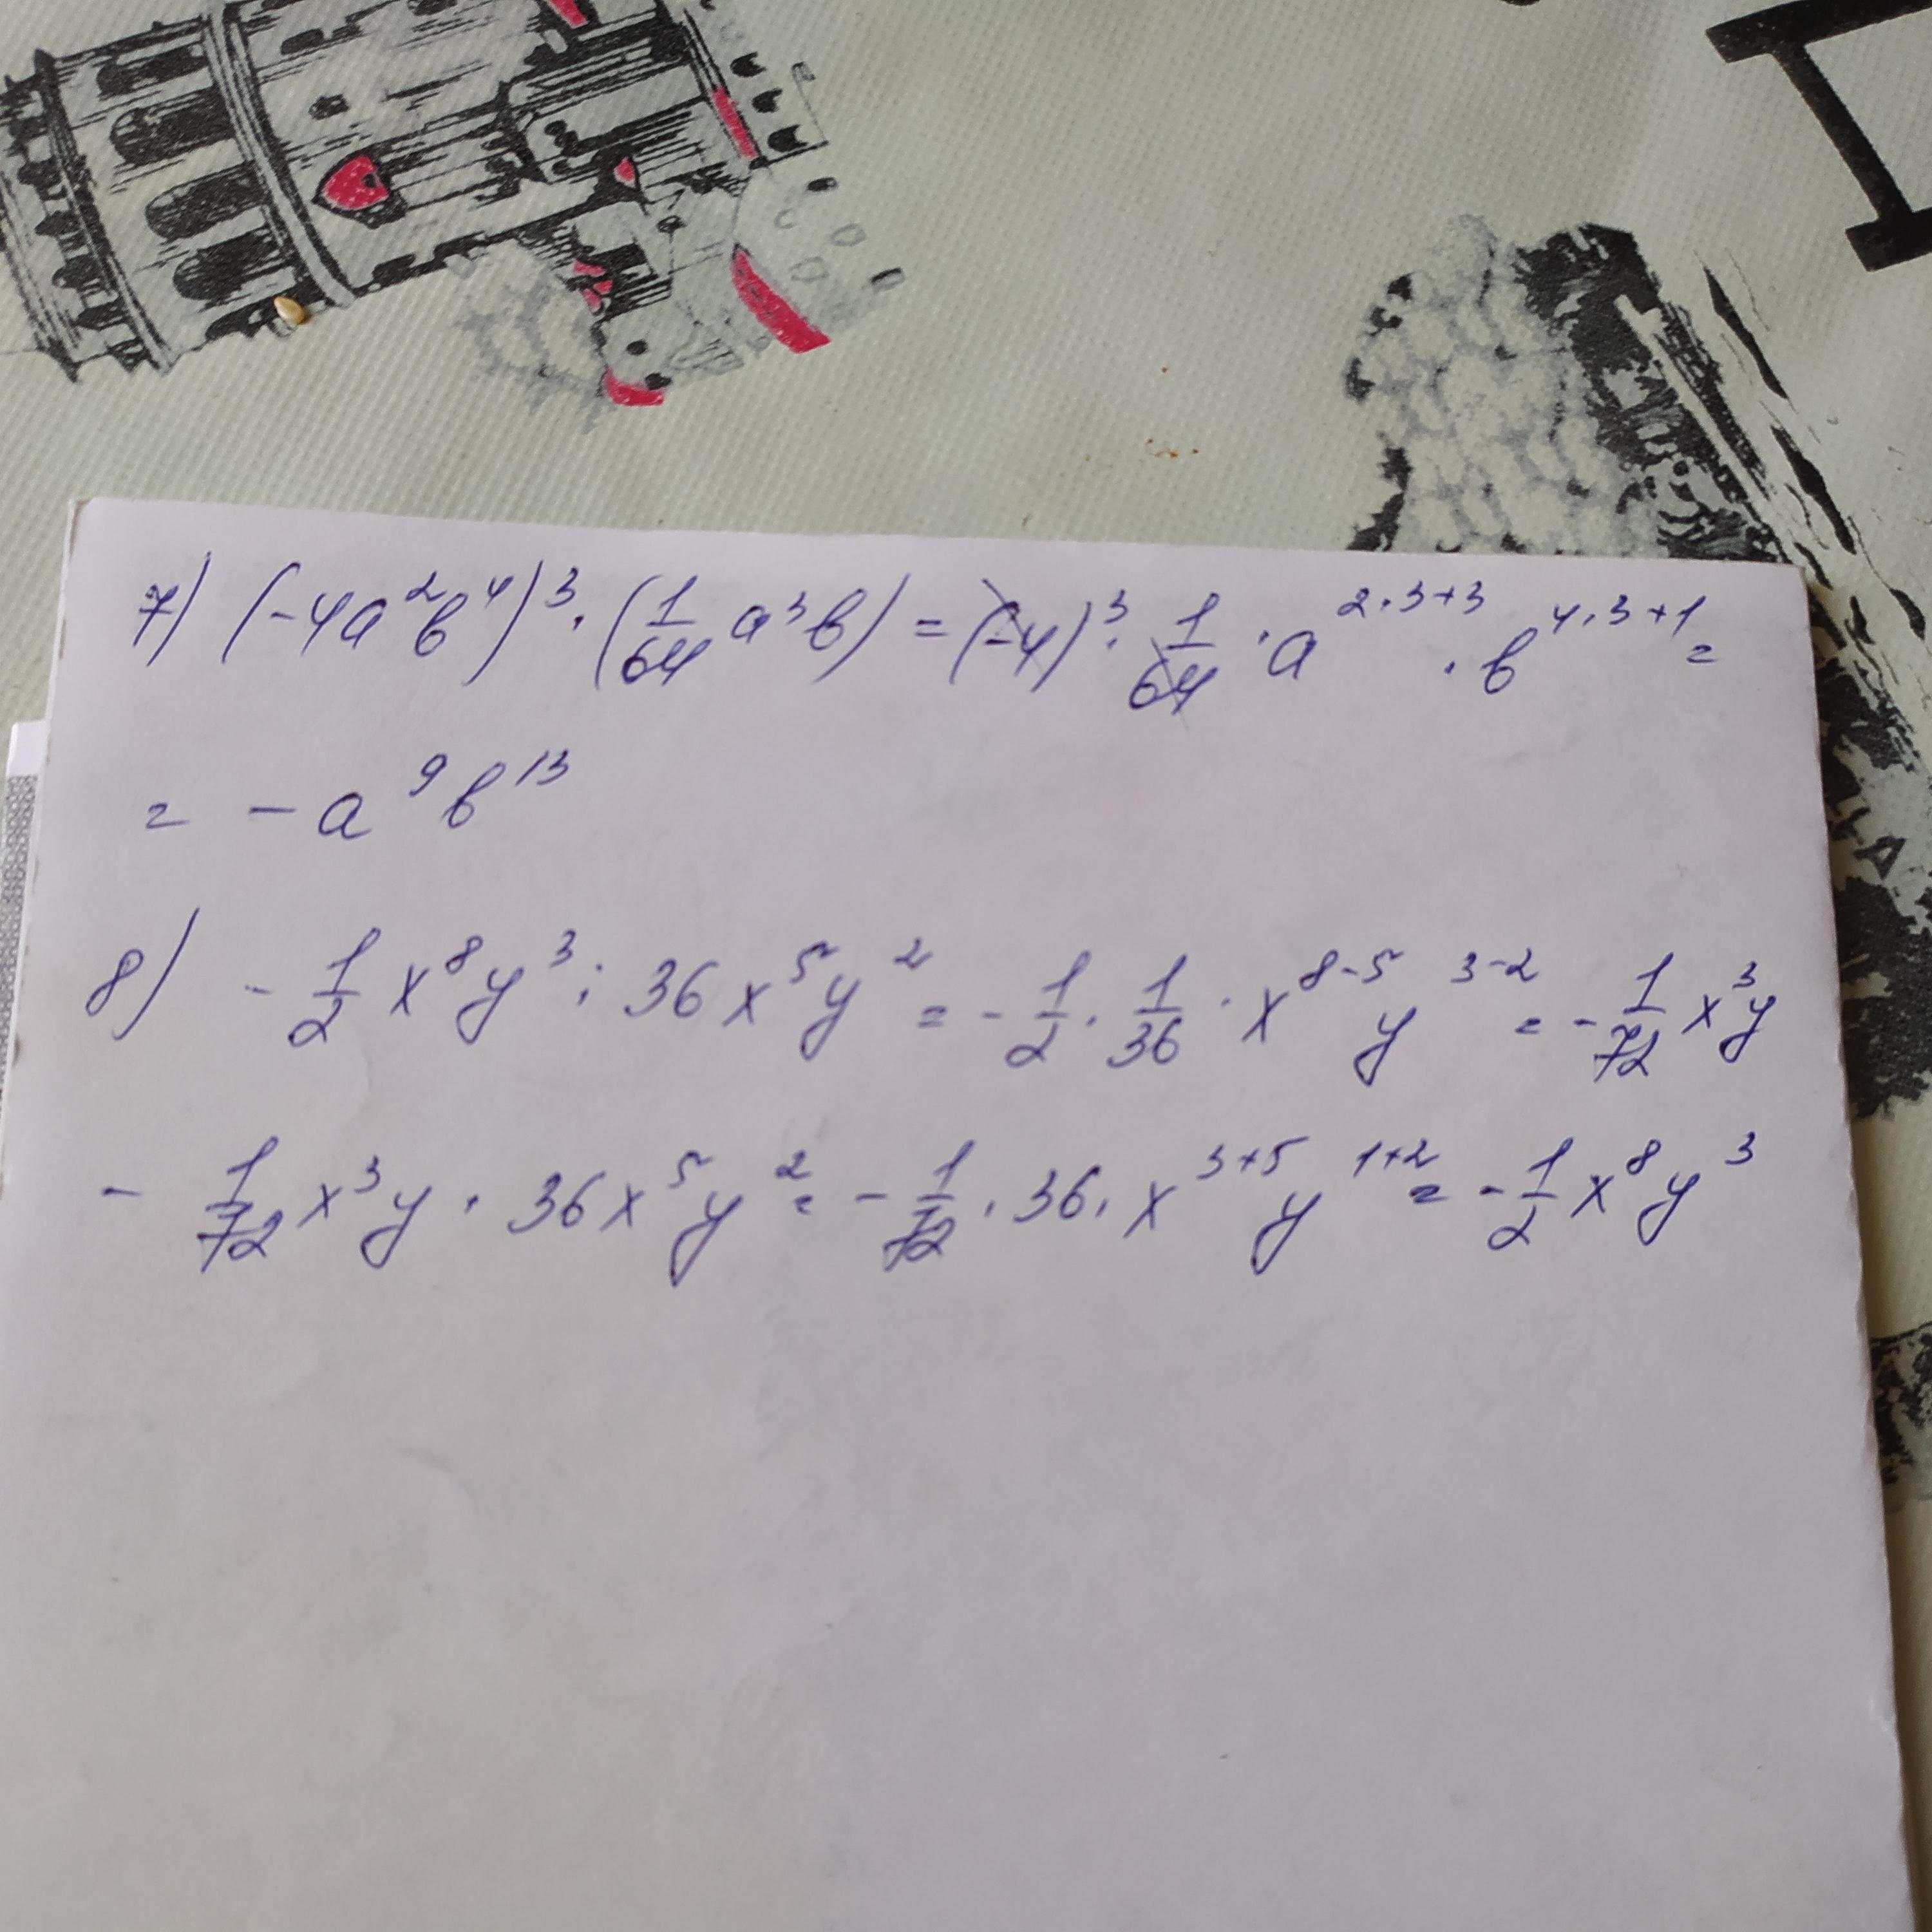 7) (-4a²b⁴)³ · (1/64 a³b) = (-4)³ · 1/64 · a^(2·3+3) · b^(4·3+1) =
= -a⁹b¹³
8) -1/2 x⁸y³ : 36x⁵y² = -1/2 · 1/36 · x^(8-5) y^(3-2) = -1/72 x³y
-1/72 x³y · 36x⁵y² = -1/72 · 36 · x^(3+5) y^(1+2) = -1/2 x⁸y³